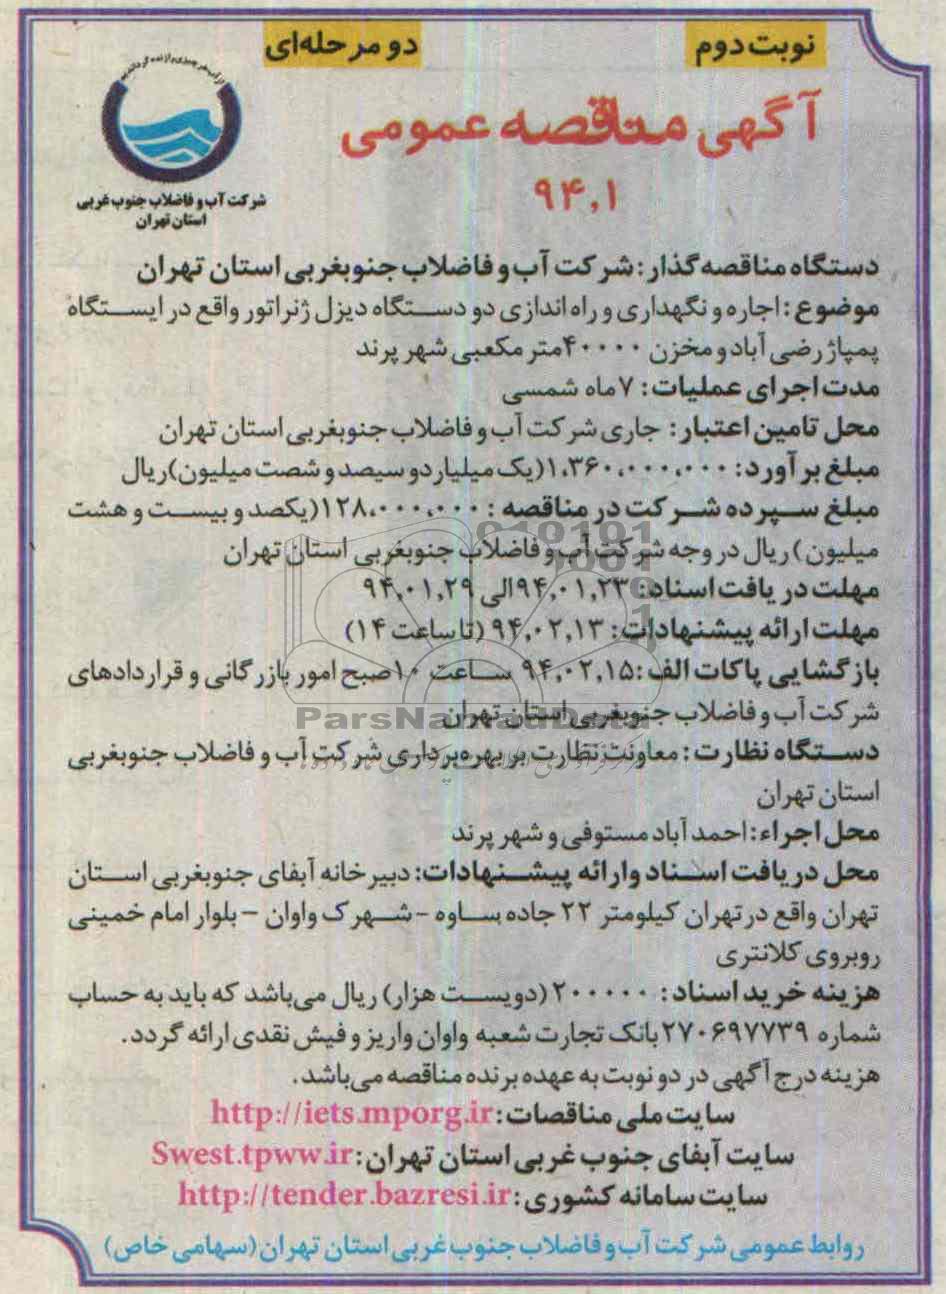 نوبت دوم
دو مرحله‌ای
آگهی مناقصه عمومی
۹۴,۱
شرکت آب و فاضلاب جنوب غربی
استان تهران
دستگاه مناقصه گذار: شرکت آب و فاضلاب جنوبغربی استان تهران
موضوع: اجاره و نگهداری و راه اندازی دو دستگاه دیزل ژنراتور واقع در ایستگاه
پمپاژ رضی آباد و مخزن ۴۰۰۰۰متر مکعبی شهر پرند
مدت اجرای عملیات: ۷ماه شمسی
محل تامین اعتبار: جاری شرکت آب و فاضلاب جنوبغربی استان تهران
مبلغ برآورد: ۱،۳۶۰،۰۰۰،۰۰۰(یک میلیارد و سیصد و شصت میلیون)ریال
مبلغ سپرده شرکت در مناقصه: ۱۲۸،۰۰۰،۰۰۰(یکصد و بیست و هشت
میلیون) ریال در وجه شرکت آب و فاضلاب جنوبغربی استان تهران
مهلت دریافت اسناد: ۹۴,۰۱,۲۳الی ۹۴,۰۱,۲۹
مهلت ارائه پیشنهادات: ۹۴,۰۲,۱۳ (تا ساعت ۱۴)
بازگشایی پاکات الف: ۹۴,۰۲,۱۵ ساعت ۱۰صبح امور بازرگانی و قراردادهای
شرکت آب و فاضلاب جنوبغربی استان تهران
ParsNamadData
دستگاه نظارت: معاونت نظارت بر بهره‌برداری شرکت آب و فاضلاب جنوبغربی
استان تهران
محل اجراء: احمد آباد مستوفی و شهر پرند
محل دریافت اسناد وارائه پیشنهادات: دبیرخانه آبفای جنوبغربی استان
تهران واقع در تهران کیلومتر ۲۲ جاده ساوه - شهرک واوان - بلوار امام خمینی
روبروی کلانتری
هزینه خرید اسناد: ۲۰۰۰۰۰ (دویست هزار) ریال می‌باشد که باید به حساب
شماره ۲۷۰۶۹۷۷۳۹ بانک تجارت شعبه واوان واریز و فیش نقدی ارائه گردد.
هزینه درج آگهی در دو نوبت به عهده برنده مناقصه می‌باشد.
سایت ملی مناقصات: http://iets.mporg.ir
سایت آبفای جنوب غربی استان تهران: Swest.tpww.ir
سایت سامانه کشوری: http://tender.bazresi.ir
روابط عمومی شرکت آب و فاضلاب جنوب غربی استان تهران (سهامی خاص)